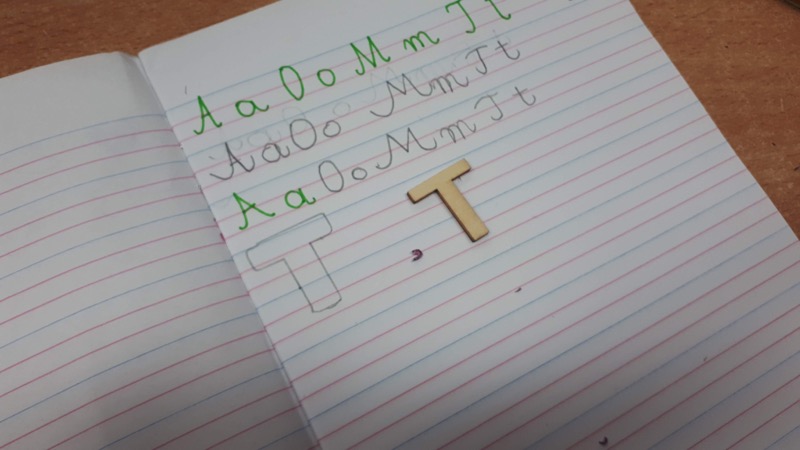 A a O o M m T t
A a O o M m T t
A a O o M m T t
T T